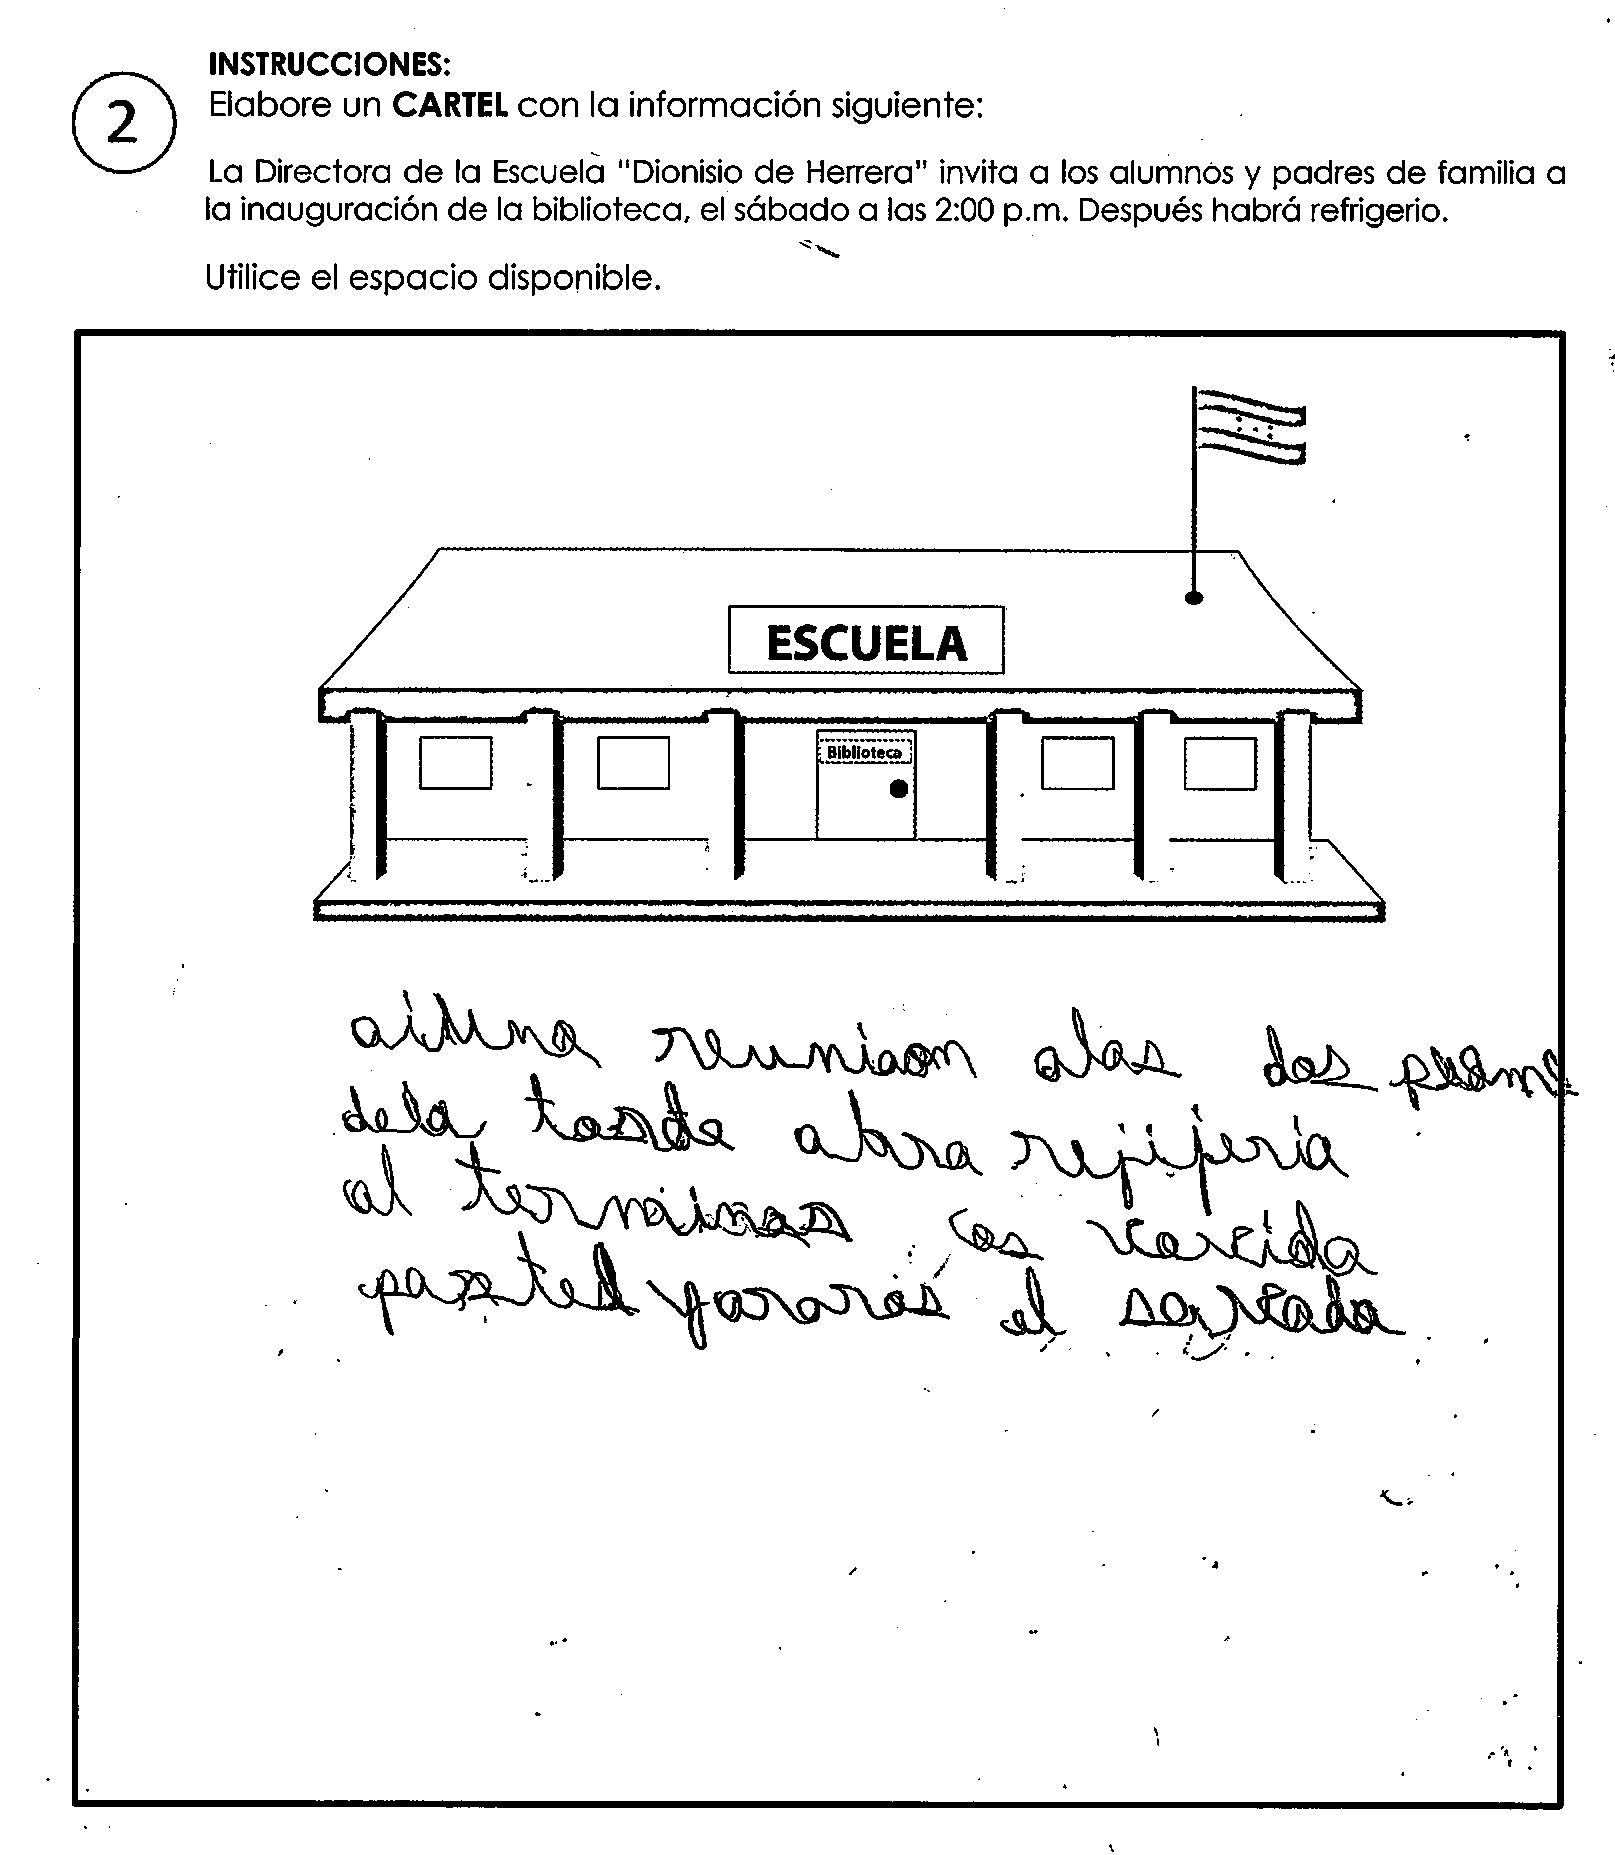 INSTRUCCIONES:
2
Elabore un CARTEL con la información siguiente:
La Directora de la Escuela "Dionisio de Herrera" invita a los alumnos y padres de familia a
la inauguración de la biblioteca, el sábado a las 2:00 p.m. Después habrá refrigerio.
Utilice el espacio disponible.
ESCUELA
Biblioteca
reunion alas dos
dela tarde abra rejijeria
al terminar
el